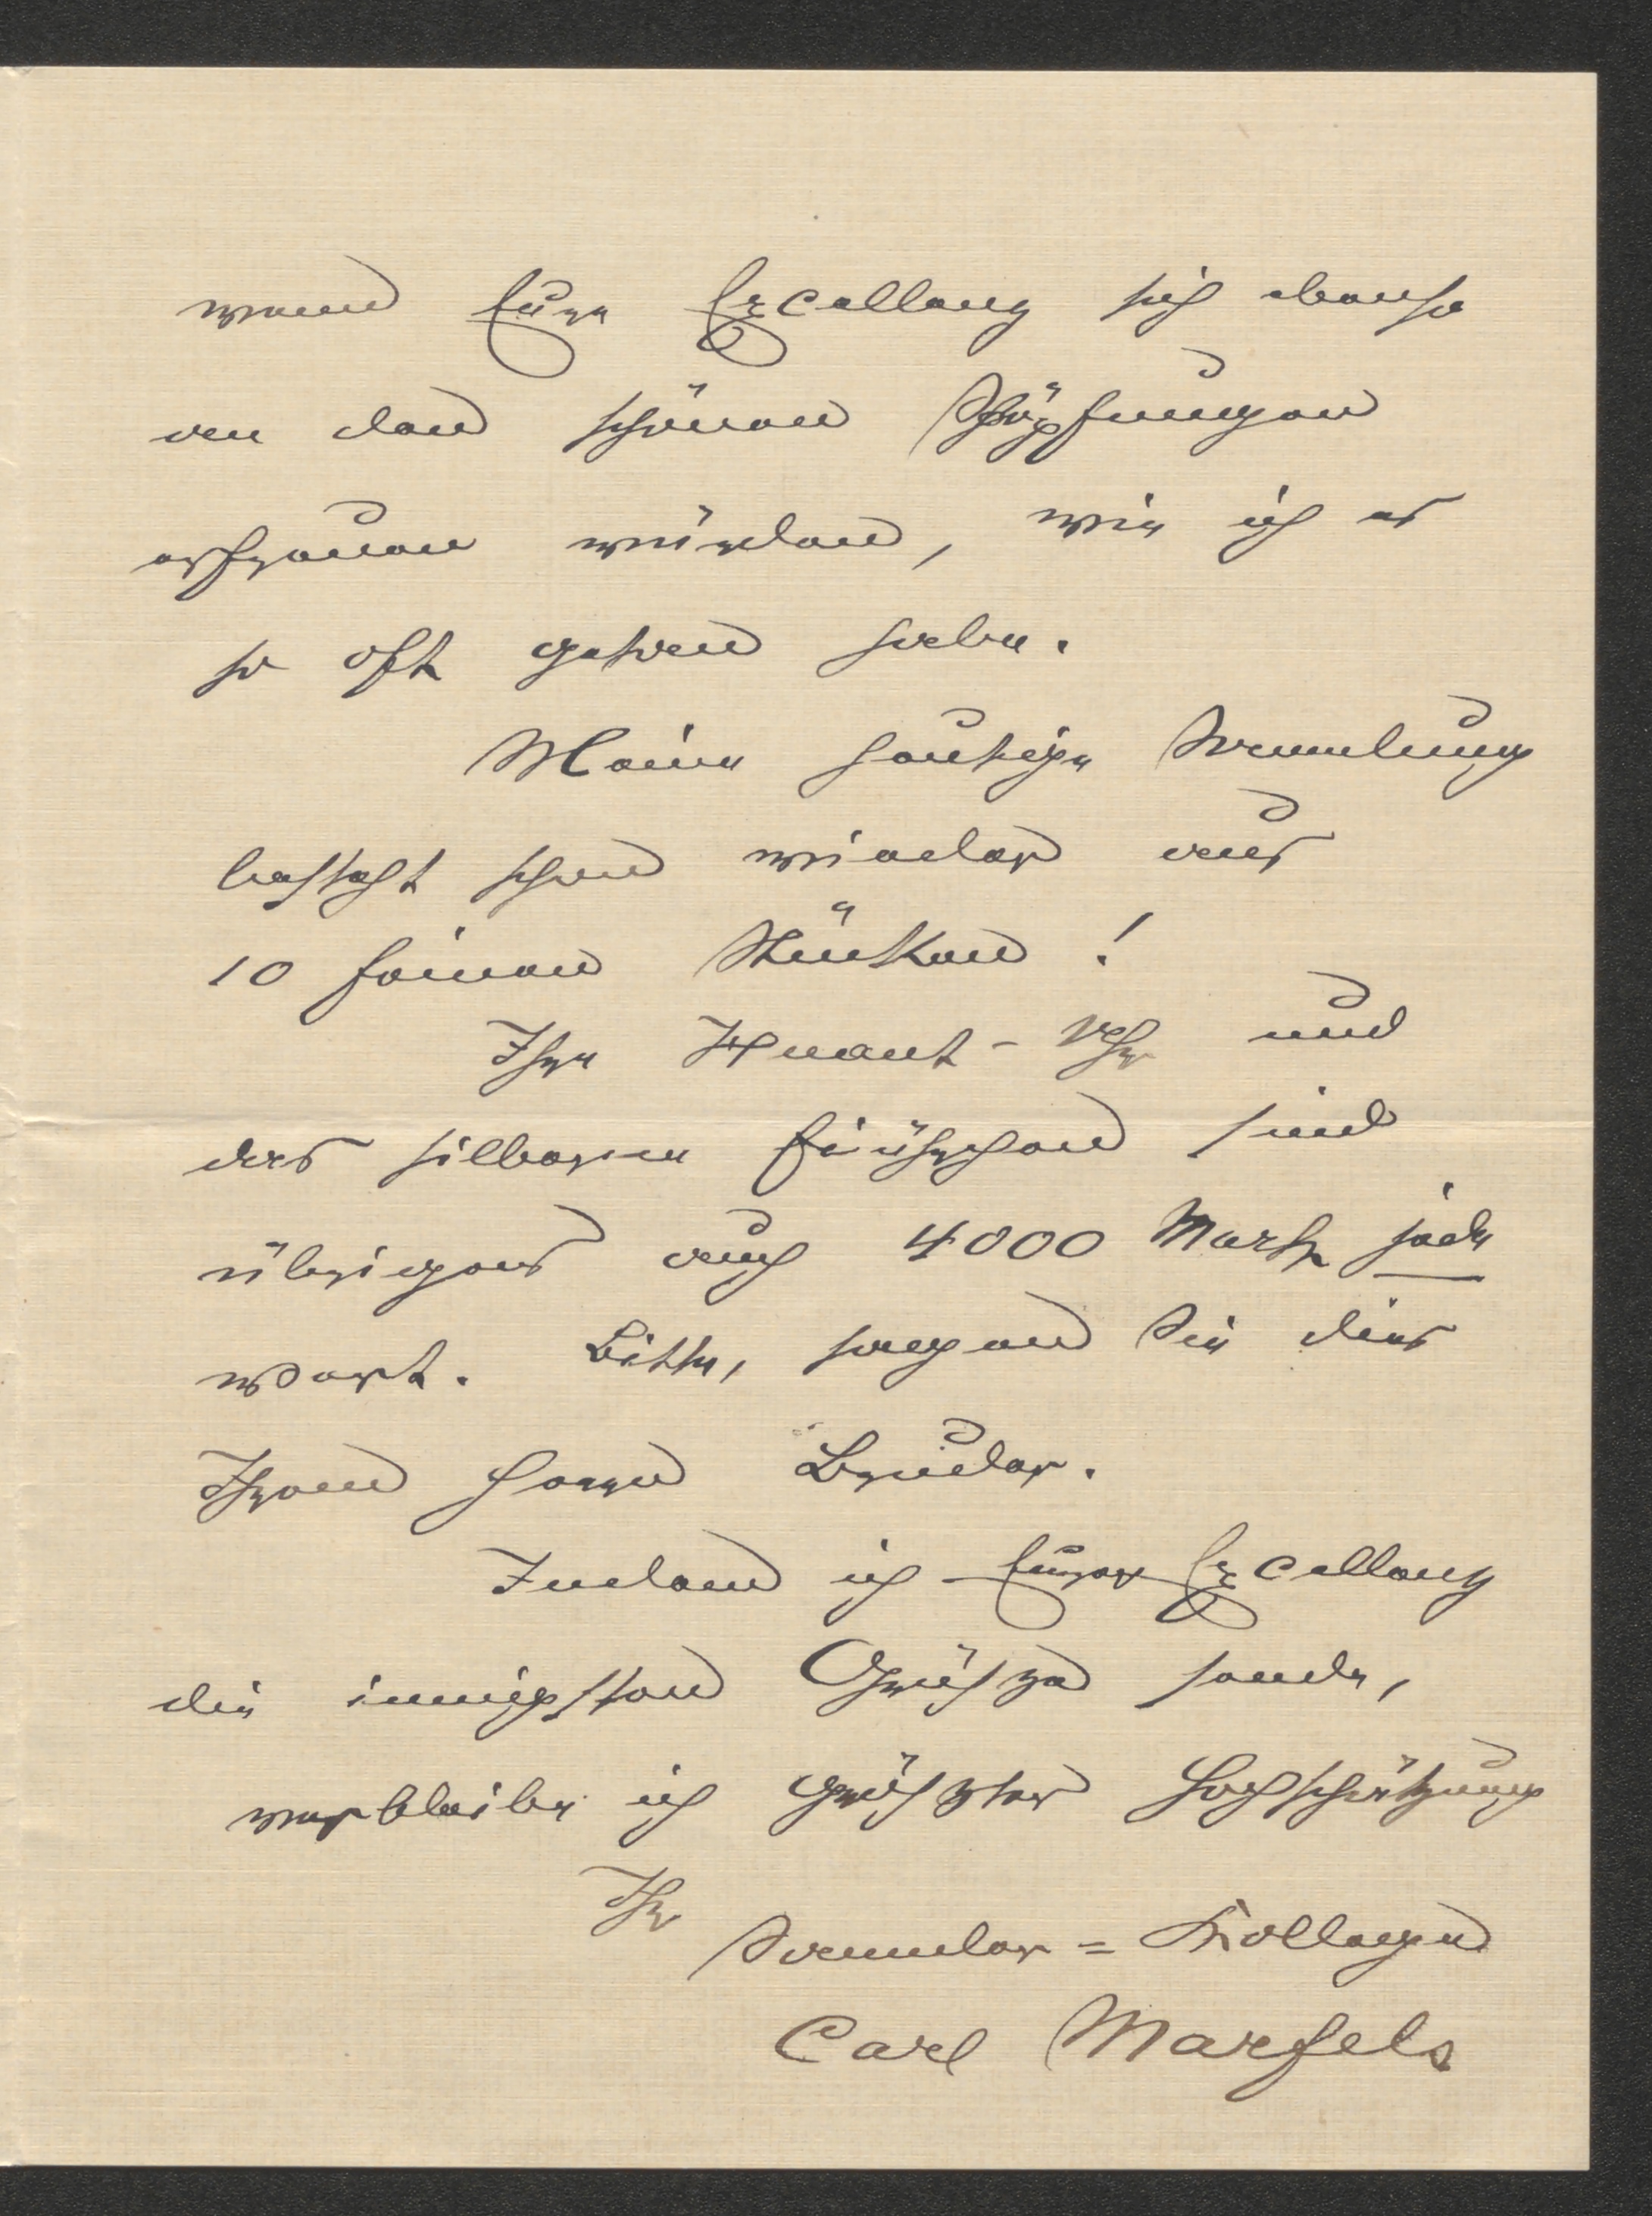 wenn Eure Excellenz sich ebenso
an den schönen Schöpfungen
erfreuen würden, wie ich es
so oft getan habe.
Meine heutige Sammlung
besteht schon wieder aus
10 feinen Stücken!
Ihre Uhr und
das silberne sind
übrigens auch 4000 Mark jede
wert. Bitte, sagen Sie dies
Ihrem Herrn Bruder.
Indem ich Eurer Excellenz
die innigsten Grüsze sende,
verbleibe ich gröszter Hochschätzung
Ihr
Sammler=Kollege
Carl Marfels